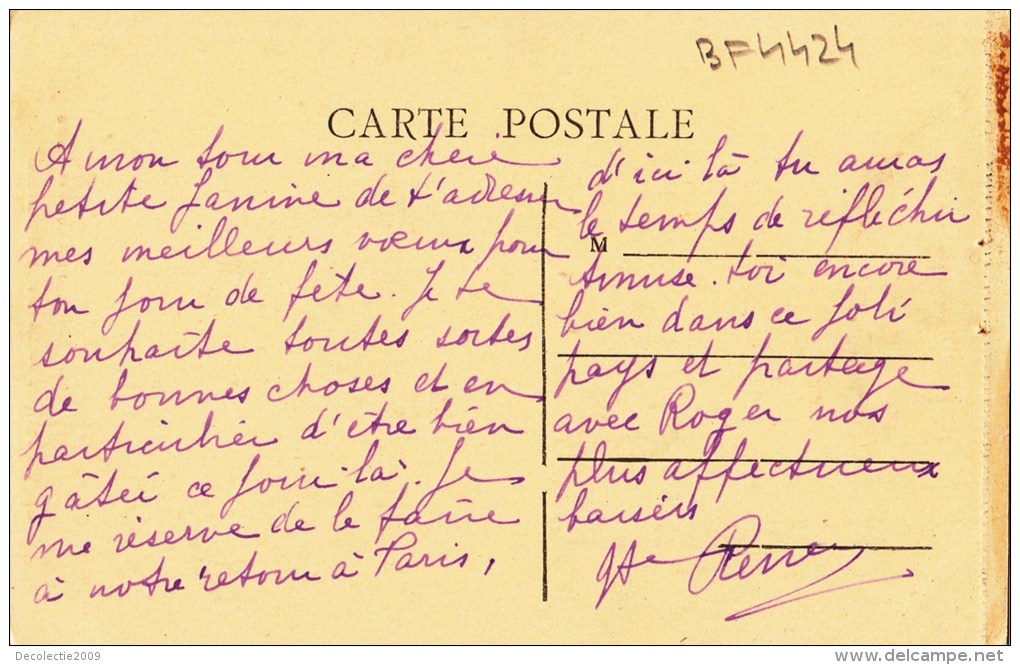 BF4424
CARTE POSTALE
A mon tour ma chère
petite Janine de t'adresser
mes meilleurs vœux pour
ton jour de fête. Je te
souhaite toutes sortes
de bonnes choses et en
particulier d'être bien
gâtée ce jour-là. Je
me réserve de le faire
à notre retour à Paris,
d'ici là tu auras
le temps de réfléchir
M
Amuse-toi encore
bien dans ce joli
pays et partage
avec Roger nos
plus affectueux
baisers
Decolectie2009
www.delcampe.net